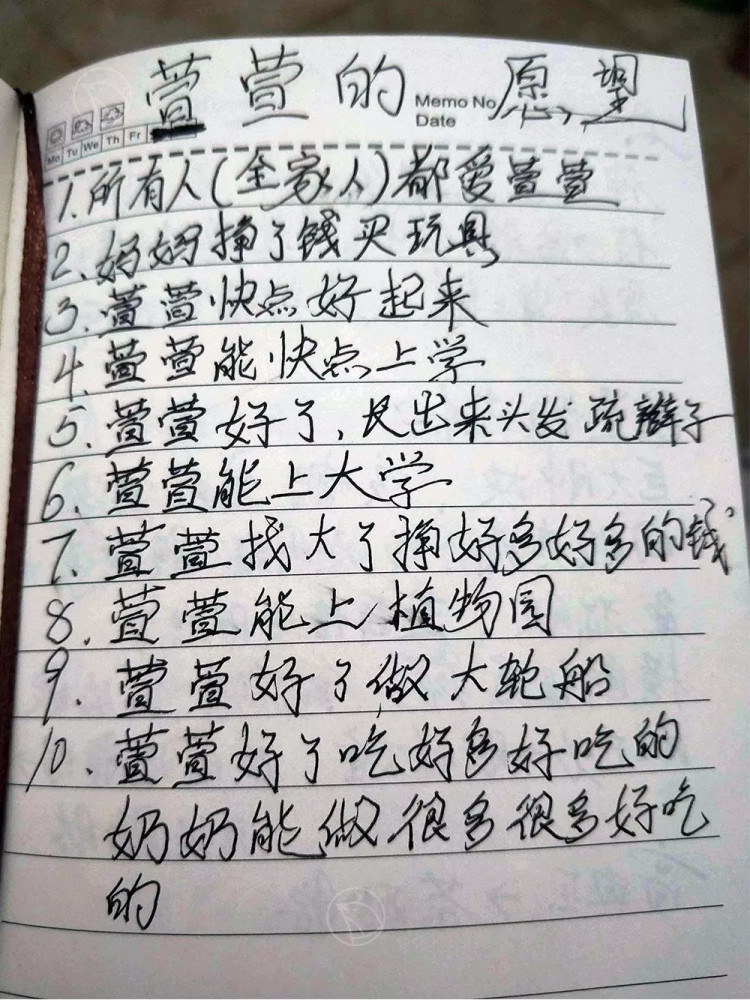 萱萱的愿望
Memo No
Date
Mo Tu We Th Fr
1.所有人(全家人)都爱萱萱
2、妈妈挣了钱买玩具
3、萱萱快点好起来
4、萱萱能快点上学
5、萱萱好了,长出来头发梳辫子
6、萱萱能上大学
7、萱萱找大了挣好多好多的钱
8、萱萱能上植物园
9、萱萱好了做大轮船
10、萱萱好了吃好多好吃的
奶奶能做很多很多好吃
的